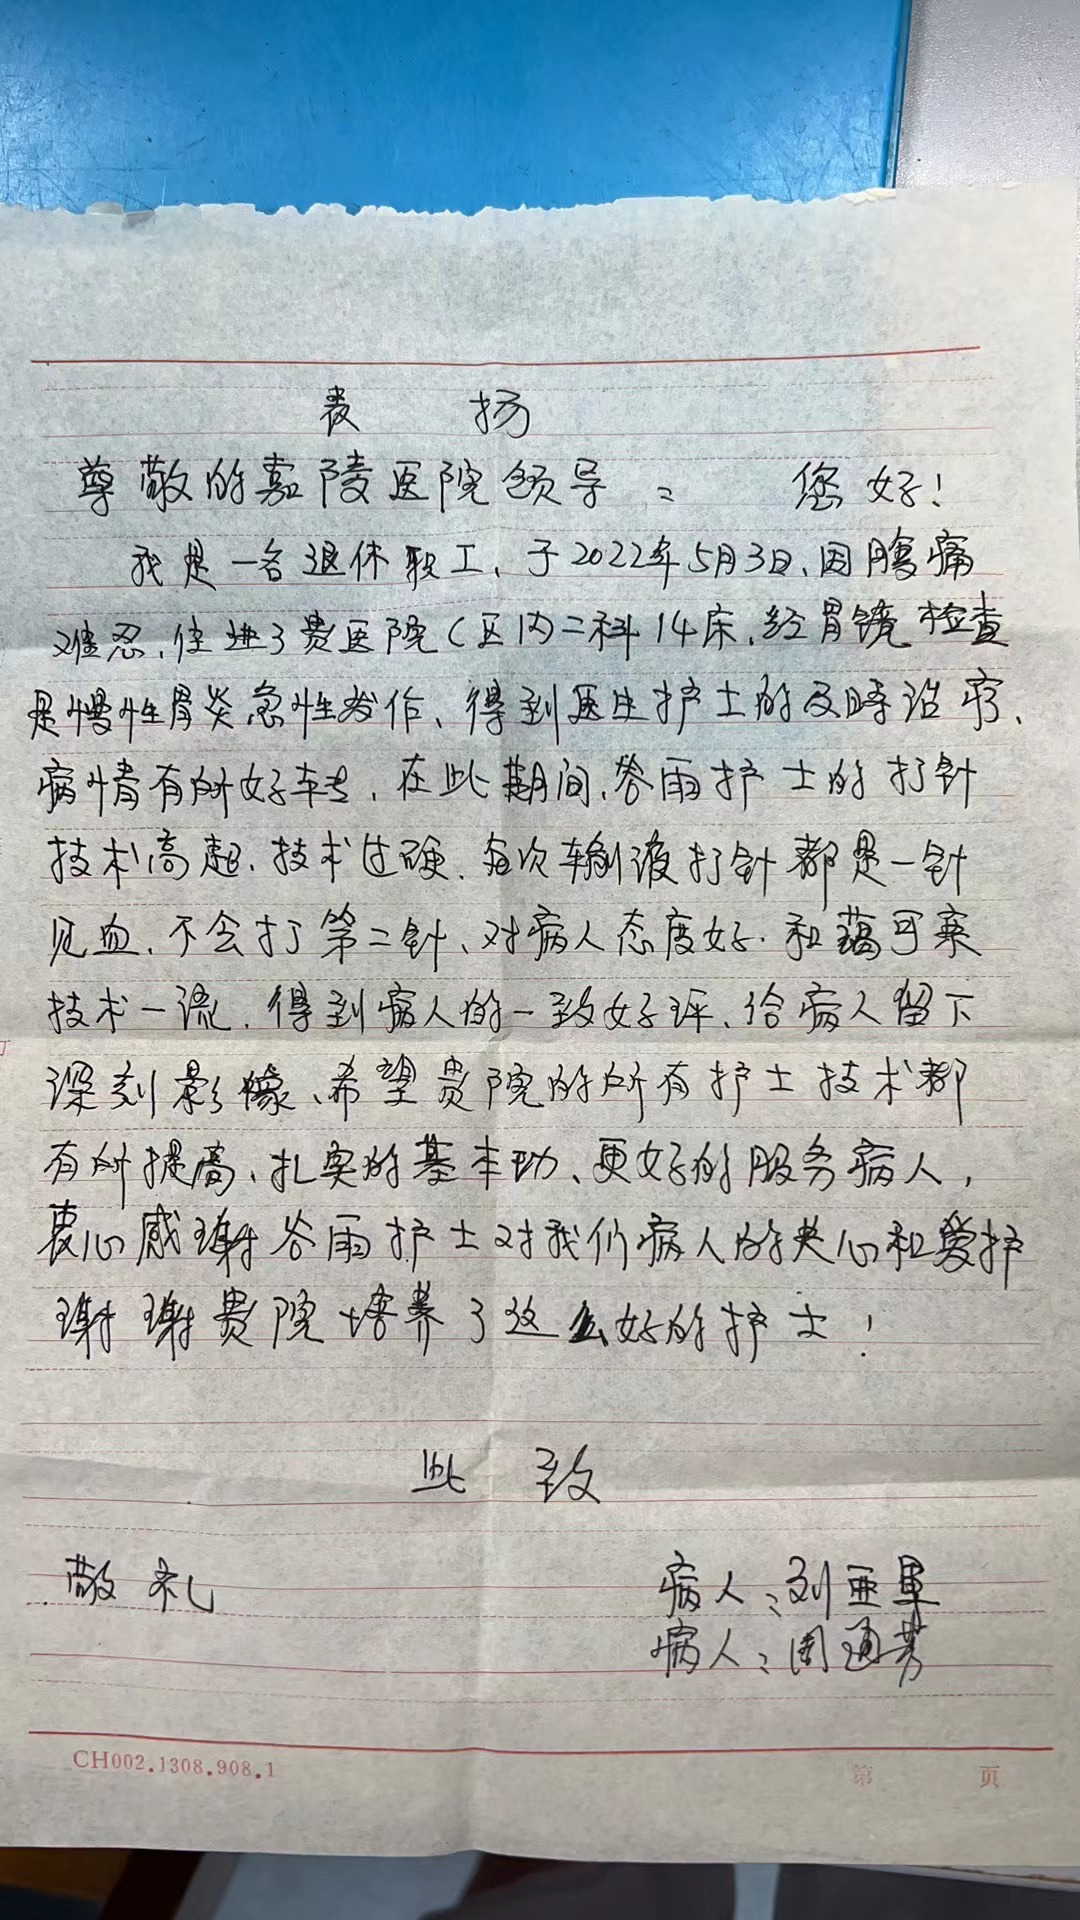 表 扬
尊敬的嘉陵医院领导： 您好！
我是一名退休职工、于2022年5月3日、因腹痛
难忍、住进了贵医院（区内二科14床、经胃镜检查
是慢性胃炎急性发作、得到医生护士的及时治疗、
病情有所好转、在此期间、谷雨护士的打针
技术高超、技术过硬、每次输液打针都是一针
见血、不会打第二针、对病人态度好、和蔼可亲
技术一流、得到病人的一致好评、给病人留下
深刻影像、希望贵院的所有护士技术都
有所提高、扎实的基本功、更好的服务病人，
衷心感谢谷雨护士对我们病人的关心和爱护
谢谢贵院培养了这么好的护士！
此 致
敬礼 病人：刘亚军
病人：周通芳
CH002.1308.908.1 第 页